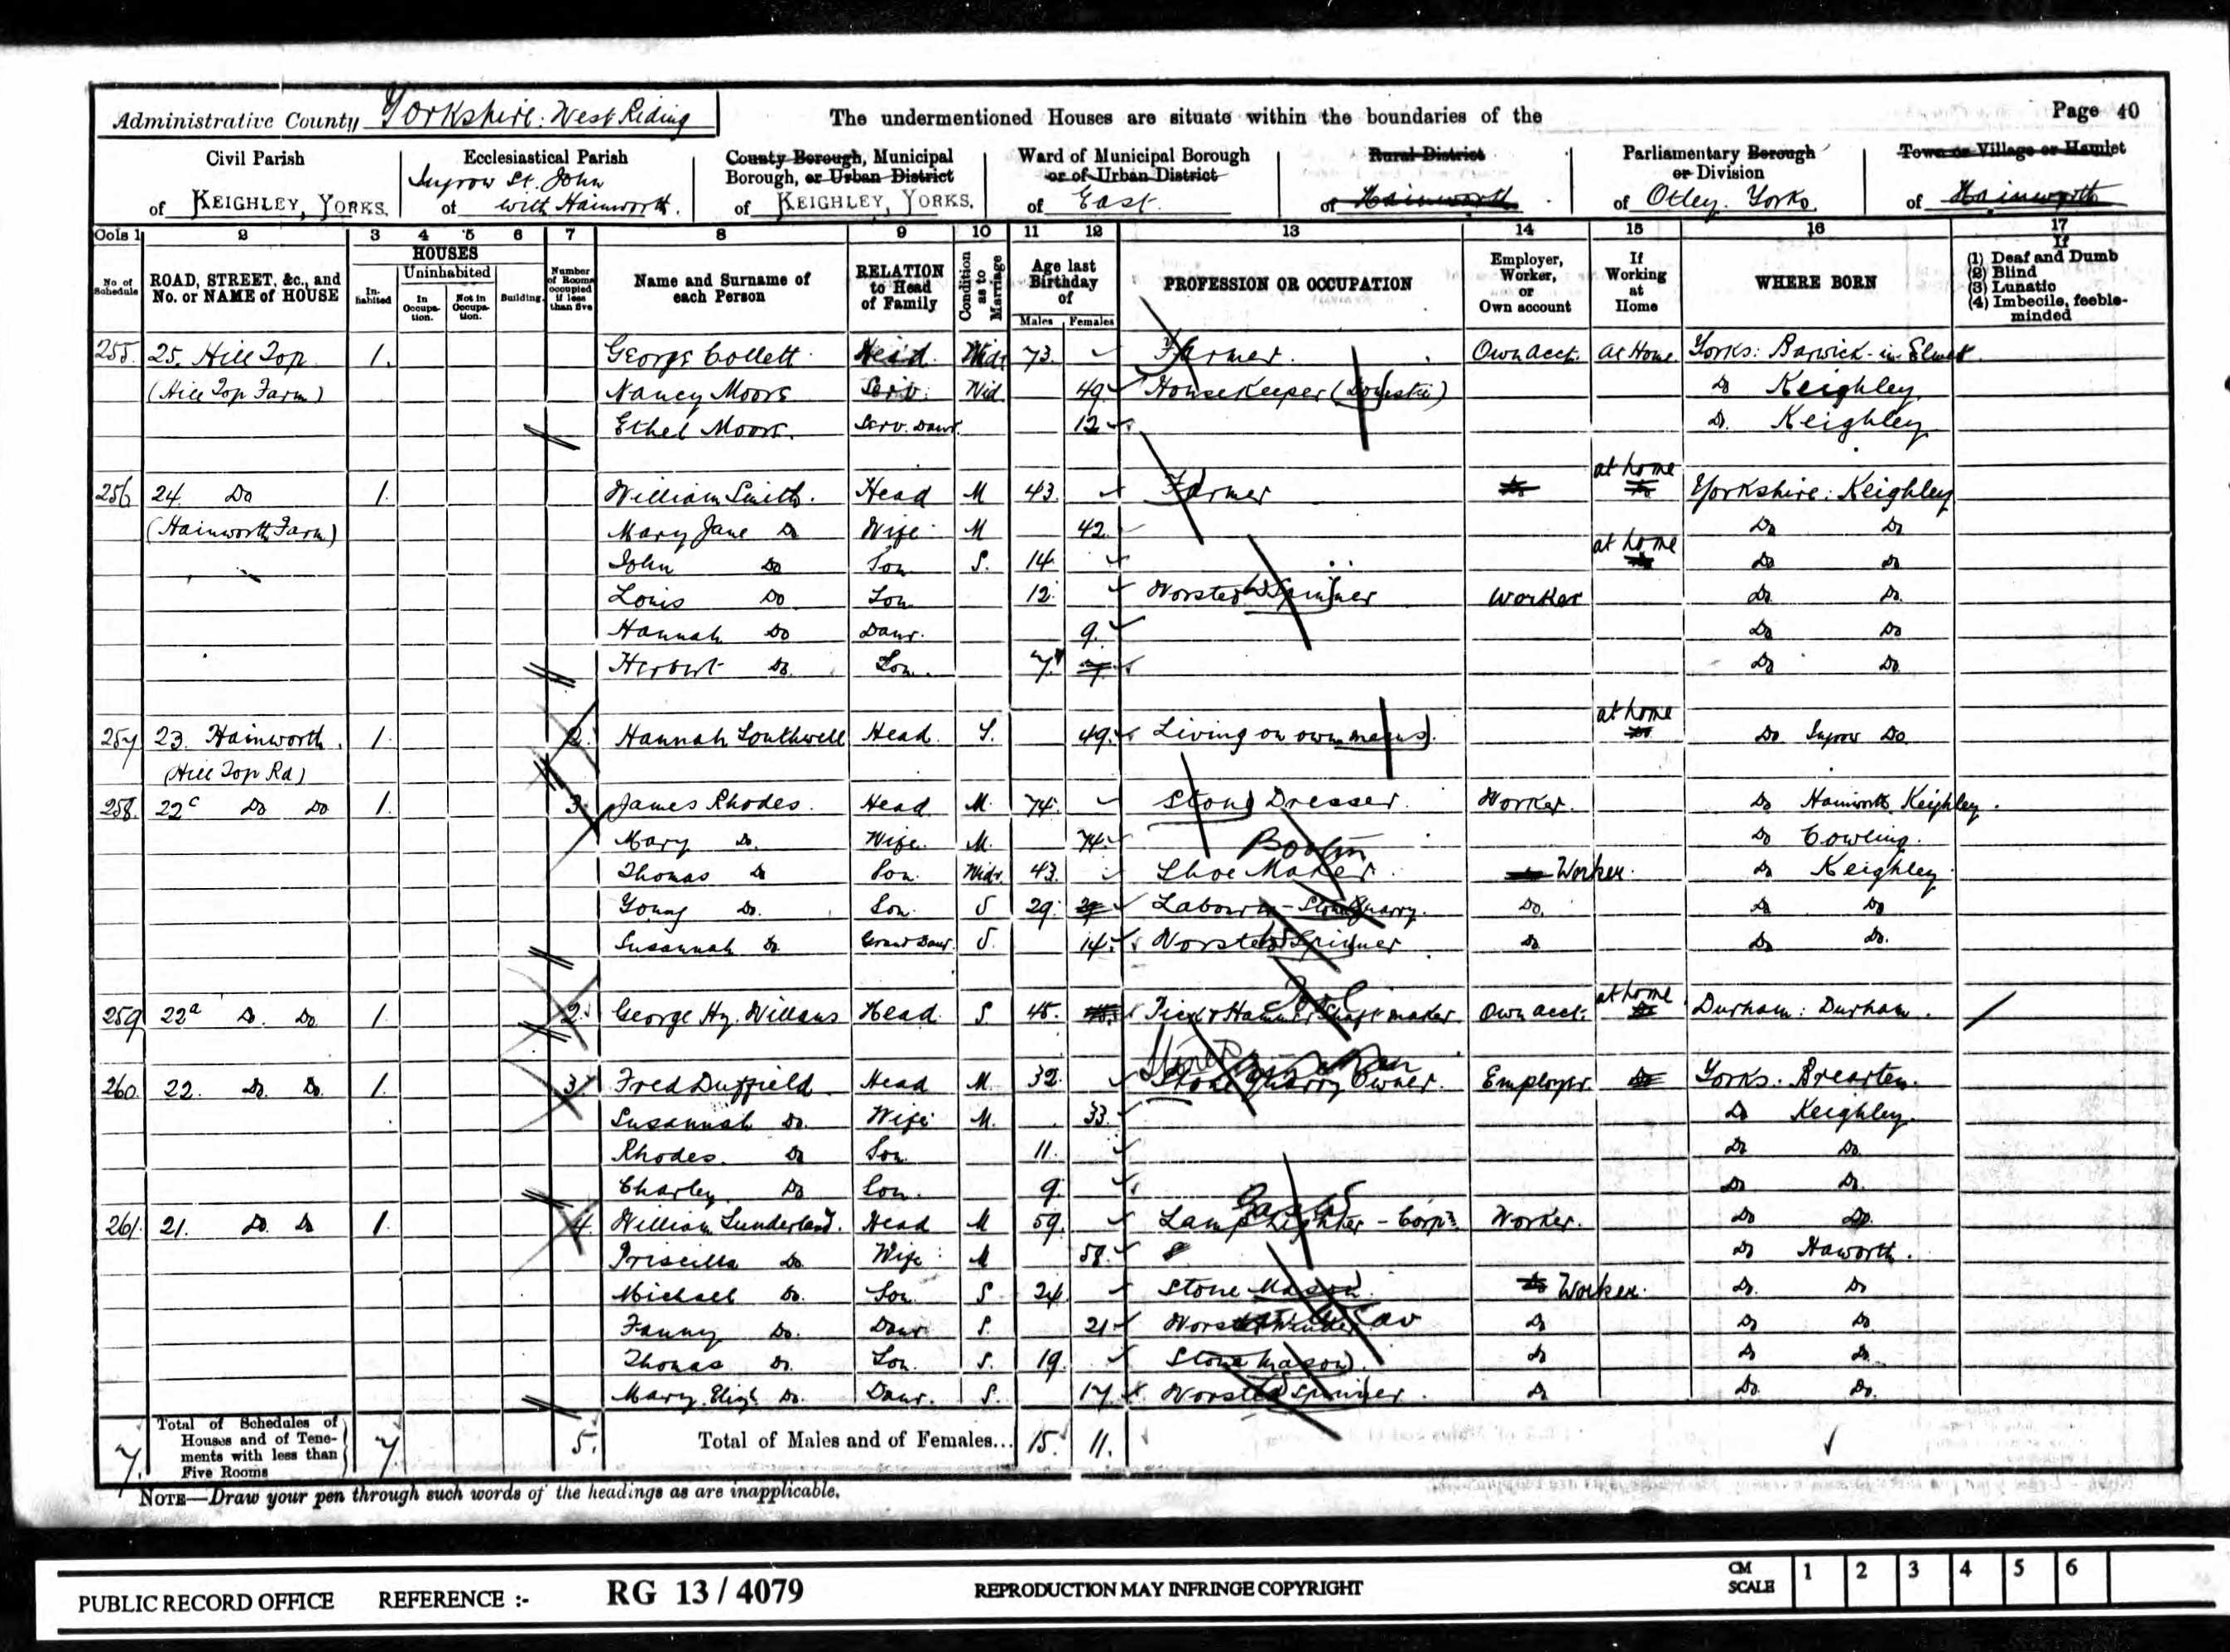 Administrative County Yorkshire: West Riding
The undermentioned Houses are situate within the boundaries of the
Page 40
Civil Parish of KEIGHLEY, YORKS.
Ecclesiastical Parish of Ingrow St. John with Hainworth.
County Borough, Municipal Borough, or Urban District of KEIGHLEY, YORKS.
Ward of Municipal Borough or of Urban District of East.
Rural District of Hainworth
Parliamentary Borough or Division of Otley. Yorks.
Town or Village or Hamlet of Hainworth
Cols 1 2 3 4 5 6 7 8 9 10 11 12 13 14 15 16 17
No of Schedule
ROAD, STREET, &c., and No. or NAME of HOUSE
HOUSES
Inhabited
Uninhabited
In Occupation.
Not in Occupation.
Building.
Number of Rooms occupied if less than five
Name and Surname of each Person
RELATION to Head of Family
Condition as to Marriage
Age last Birthday of
Males Females
PROFESSION OR OCCUPATION
Employer, Worker, or Own account
If Working at Home
WHERE BORN
If
(1) Deaf and Dumb
(2) Blind
(3) Lunatic
(4) Imbecile, feeble-minded
255. 25. Hill Top 1. George Collett Head Widr 73. Farmer. Own acct. At Home Yorks: Barwick-in-Elmet
(Hill Top Farm) Nancy Moore Serv. Wid 49 Housekeeper (Domestic) Do Keighley
Ethel Moore. Serv. Daur. 12 Do Keighley
256 24. Do 1. William Smith. Head M 43. Farmer at home Yorkshire: Keighley
(Hainworth Farm) Mary Jane Do Wife M 42 Do Do
John Do Son S. 14 at home Do Do
Louis Do Son 12 Worsted Spinner Worker Do Do
Hannah Do Daur. 9. Do Do
Herbert Do Son 7. Do Do
257 23. Hainworth. 1. 2. Hannah Southwell Head S. 49. Living on own means at home Do Ingrow Do
(Hill Top Rd)
258. 22c Do Do 1. 3. James Rhodes. Head. M. 74. Stone Dresser. Worker. Do Hainworth Keighley.
Mary Do. Wife. M. 74. Do Cowling.
Thomas Do Son. Widr. 43. Shoe Maker. Worker. Do Keighley
Young Do. Son. S 29. Labourer - Stone Quarry. Do. Do Do
Susannah Do Grand Daur. S. 14. Worsted Spinner Do Do Do.
259 22a Do. Do. 1. 2. George Hy. Willans Head S. 45. Pick & Hammer Shaft maker Own acct. at home Durham: Durham.
260. 22. Do. Do. 1. 3. Fred Duffield Head M. 32. Stone Quarry Owner. Employer. Yorks. Brearton.
Susannah Do. Wife M. 33. Do Keighley.
Rhodes. Do Son 11. Do Do.
Charley Do Son. 9. Do Do.
261. 21. Do. Do 1. 4. William Sunderland. Head M 59. Lamp Lighter - Corpn. Worker. Do Do.
Priscilla Do Wife M 58. Do Haworth.
Michael Do. Son S 24. Stone Mason. Worker. Do. Do
Fanny Do. Daur S. 21 Worsted Winder Do Do Do.
Thomas Do. Son. S. 19. Stone Mason. Do Do Do.
Mary Elizh. Do. Daur. S. 17 Worsted Spinner. Do Do. Do.
7. Total of Schedules of Houses and of Tenements with less than Five Rooms 7 5. Total of Males and of Females... 15. 11.
NOTE—Draw your pen through such words of the headings as are inapplicable.
PUBLIC RECORD OFFICE REFERENCE :- RG 13/4079 REPRODUCTION MAY INFRINGE COPYRIGHT CM SCALE 1 2 3 4 5 6